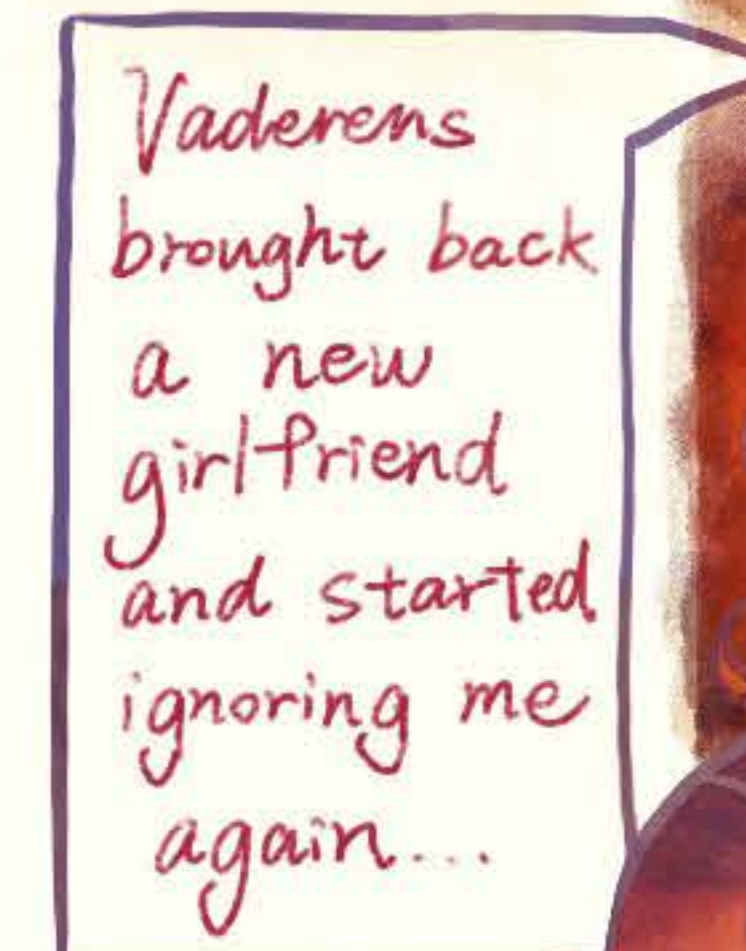 Vaderens
brought back
a new
girlfriend
and started
ignoring me
again...